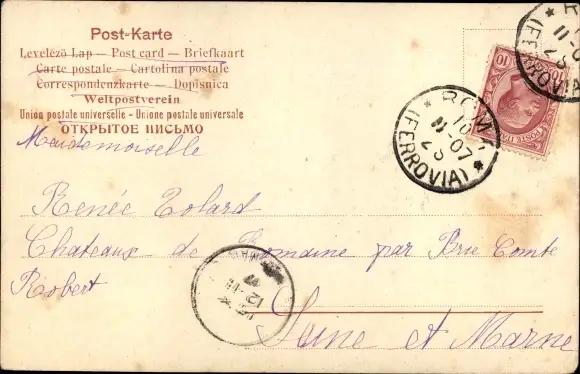 Post-Karte
Levelező Lap — Post card — Briefkaart
Carte postale — Cartolina postale
Correspondenzkarte — Dopisnica
Weltpostverein
Union postale universelle - Unione postale universale
ОТКРЫТОЕ ПИСЬМО
Mademoiselle
Renée Tolard
Chateaux de Romaine par Brie Comte
Robert
Seine et Marne
ROMA
10
11-07
2S
(FERROVIA)
12-11
07
10